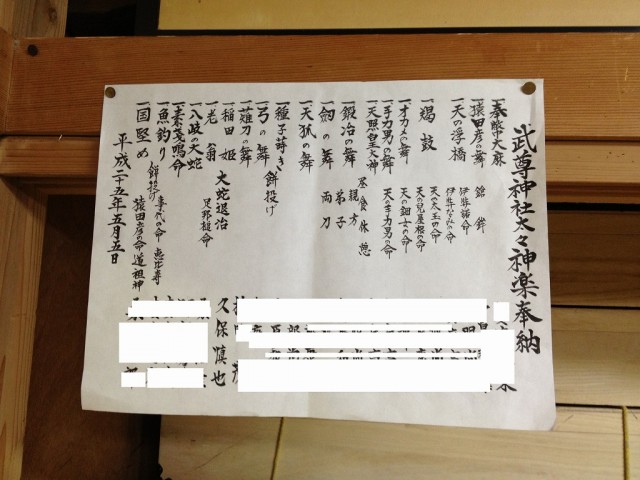 武尊神社太々神楽奉納
一奉幣中大麻
一猿田彦の舞 鉾
一天の浮橋 伊弉諾命
伊弉なみの命
天の太玉の命
一羯鼓 天の児屋根の命
一オカメの舞 天の鈿女の命
一手力男の舞 天の手力男の命
一天照皇大神
昼食休憩
一鍛冶の舞 親方
弟子
一剣の舞 両刀
一天狐の舞
一種子蒔き 餅投げ
一弓の舞
一薙刀の舞
一稲田姫 大蛇退治
一老翁 足那槌命
一八岐の大蛇
一素戔鳴命
一魚釣り 餅投げ 事代命 恵比寿
一国堅め 猿田彦命 道祖神
平成二十五年五月五日
久保慎也